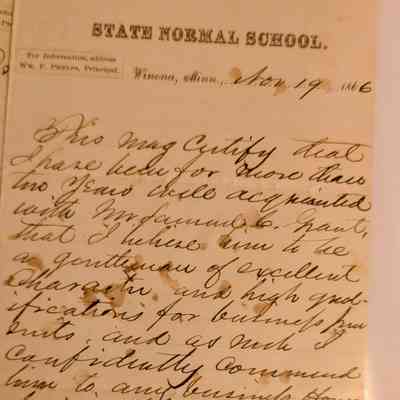 STATE NORMAL SCHOOL.
For Information, address
WM. F. PHELPS, Principal.
Winona, Minn., Nov. 19 1866
This may Certify that
I have been for more than
two years well acquainted
with Mr Samuel C. Gaut,
that I believe him to be
a gentleman of excellent
Character and high qual-
ifications for business pur
suits, and as such I
confidently commend
him to any business House